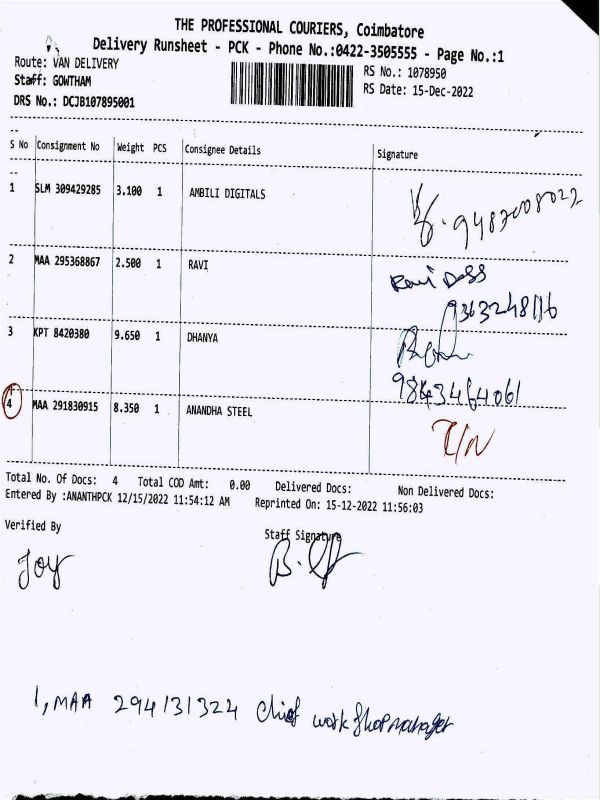 THE PROFESSIONAL COURIERS, Coimbatore
Delivery Runsheet - PCK - Phone No.:0422-3505555 - Page No.:1
Route: VAN DELIVERY
RS No.: 1078950
Staff: GOWTHAM
RS Date: 15-Dec-2022
DRS No.: DCJB107895001
S No Consignment No Weight PCS Consignee Details Signature
1 SLM 309429285 3.100 1 AMBILI DIGITALS
2 MAA 295368867 2.500 1 RAVI
Ravi Dass
3 KPT 8420380 9.650 1 DHANYA
9843464061
4 MAA 291830915 8.350 1 ANANDHA STEEL
Total No. Of Docs: 4 Total COD Amt: 0.00 Delivered Docs: Non Delivered Docs:
Entered By :ANANTHPCK 12/15/2022 11:54:12 AM Reprinted On: 15-12-2022 11:56:03
Verified By Staff Signature
Joy
1, MAA 294131324 Chief work shop manager